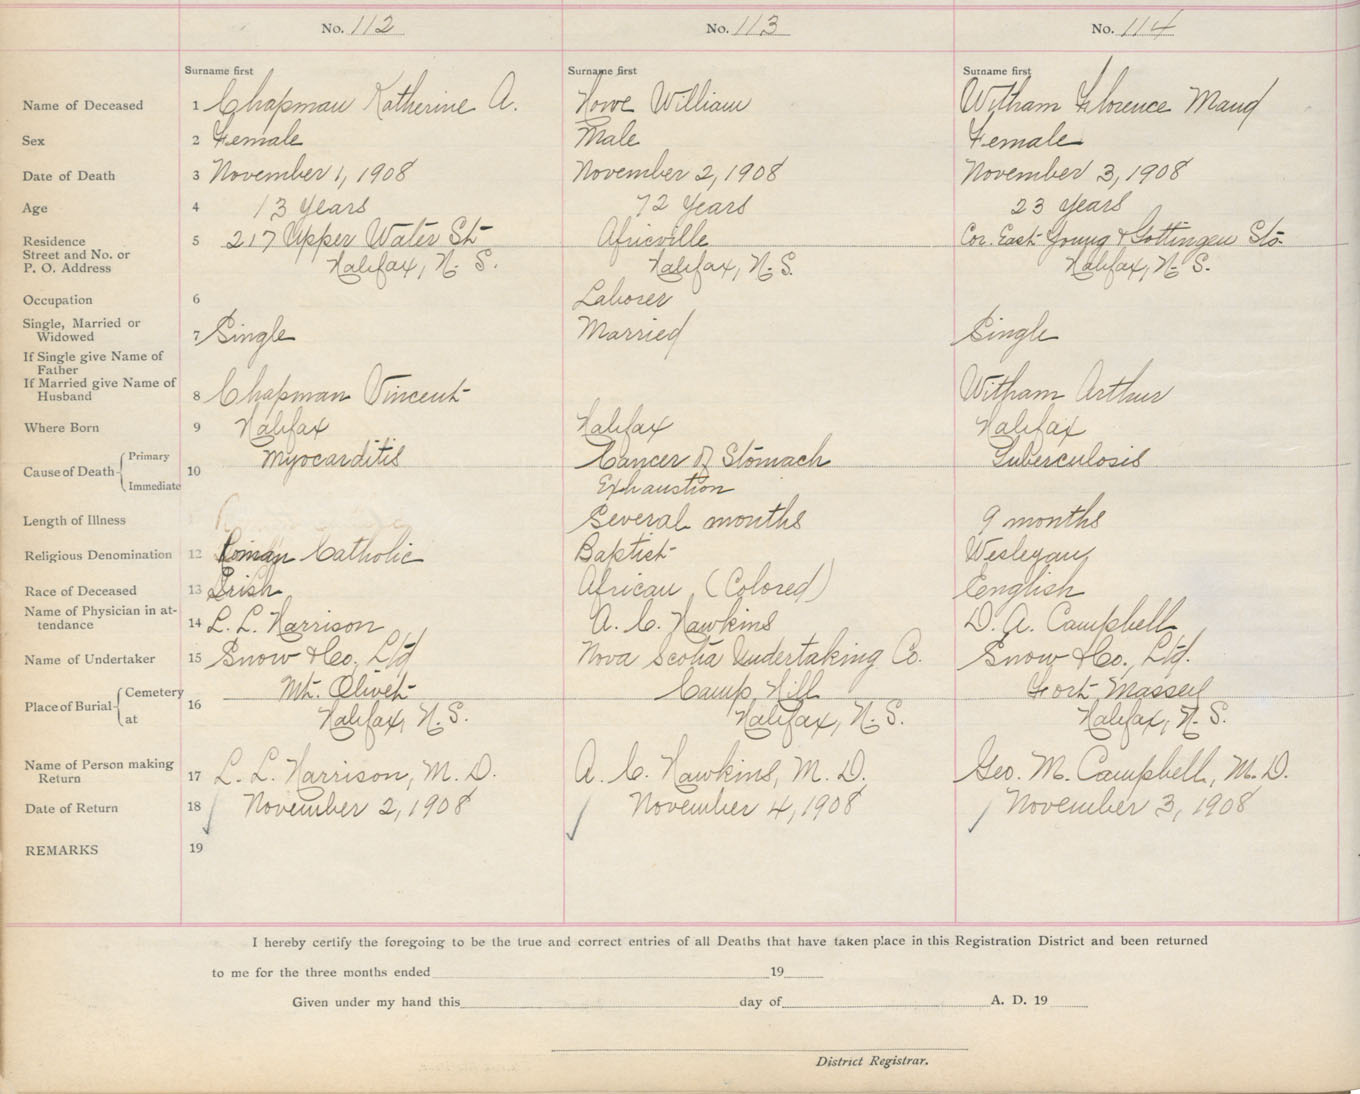 No. 112 No. 113 No. 114
Surname first Surname first Surname first
Name of Deceased 1 Chapman Katherine A. Howe William Witham Florence Maud
Sex 2 Female Male Female
Date of Death 3 November 1, 1908 November 2, 1908 November 3, 1908
Age 4 13 years 72 years 23 years
Residence 5 217 Upper Water St Africville Cor. East Young & Gottingen Sts.
Street and No. or
P. O. Address Halifax, N. S. Halifax, N. S. Halifax, N. S.
Occupation 6 Laborer
Single, Married or
Widowed 7 Single Married Single
If Single give Name of
Father
If Married give Name of
Husband 8 Chapman Vincent Witham Arthur
Where Born 9 Halifax Halifax Halifax
Primary Myocarditis Cancer of Stomach Tuberculosis
Cause of Death 10
Immediate Exhaustion
Length of Illness Several months 9 months
Religious Denomination 12 Roman Catholic Baptist Wesleyan
Race of Deceased 13 Irish African (Colored) English
Name of Physician in at-
tendance 14 L. L. Harrison A. C. Hawkins D. A. Campbell
Name of Undertaker 15 Snow & Co. Ltd Nova Scotia Undertaking Co. Snow & Co., Ltd.
Cemetery Mt. Olivet Camp Hill Fort Massey
Place of Burial 16
at Halifax, N. S. Halifax, N. S. Halifax, N. S.
Name of Person making
Return 17 L. L. Harrison, M. D. A. C. Hawkins, M. D. Geo. M. Campbell, M. D.
Date of Return 18 November 2, 1908 November 4, 1908 November 3, 1908
REMARKS 19
I hereby certify the foregoing to be the true and correct entries of all Deaths that have taken place in this Registration District and been returned
to me for the three months ended 19
Given under my hand this day of A. D. 19
District Registrar.